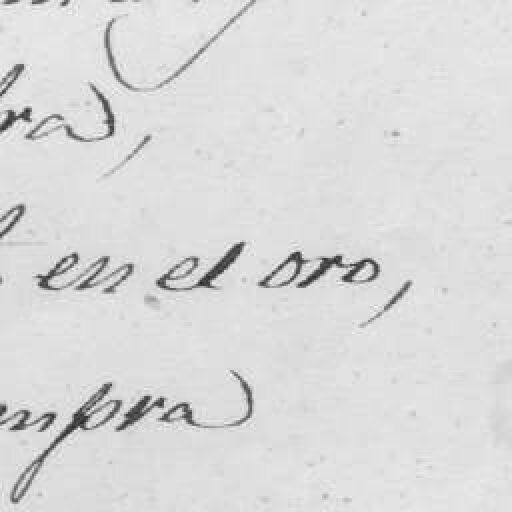 bra,
en el oro,
mpra